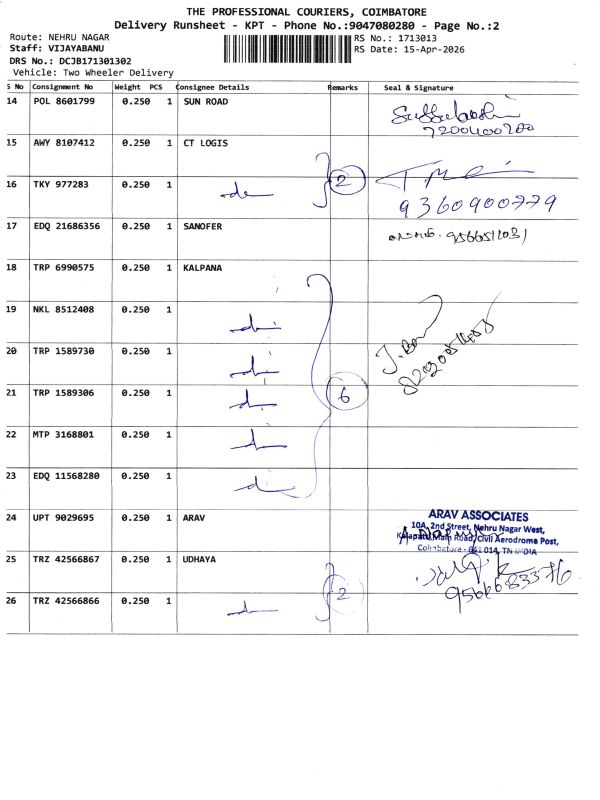 THE PROFESSIONAL COURIERS, COIMBATORE
Delivery Runsheet - KPT - Phone No.:9047080280 - Page No.:2
Route: NEHRU NAGAR
RS No.: 1713013
Staff: VIJAYABANU
RS Date: 15-Apr-2026
DRS No.: DCJB171301302
Vehicle: Two Wheeler Delivery
S No Consignment No Weight PCS Consignee Details Remarks Seal & Signature
14 POL 8601799 0.250 1 SUN ROAD
7200400200
15 AWY 8107412 0.250 1 CT LOGIS
2
16 TKY 977283 0.250 1
9360900779
17 EDQ 21686356 0.250 1 SANOFER
18 TRP 6990575 0.250 1 KALPANA
19 NKL 8512408 0.250 1
20 TRP 1589730 0.250 1
21 TRP 1589306 0.250 1
6
22 MTP 3168801 0.250 1
23 EDQ 11568280 0.250 1
24 UPT 9029695 0.250 1 ARAV
ARAV ASSOCIATES
10A, 2nd Street, Nehru Nagar West,
Kalapatti Main Road, Civil Aerodrome Post,
Coimbatore - 641 014, TN INDIA
25 TRZ 42566867 0.250 1 UDHAYA
2
26 TRZ 42566866 0.250 1